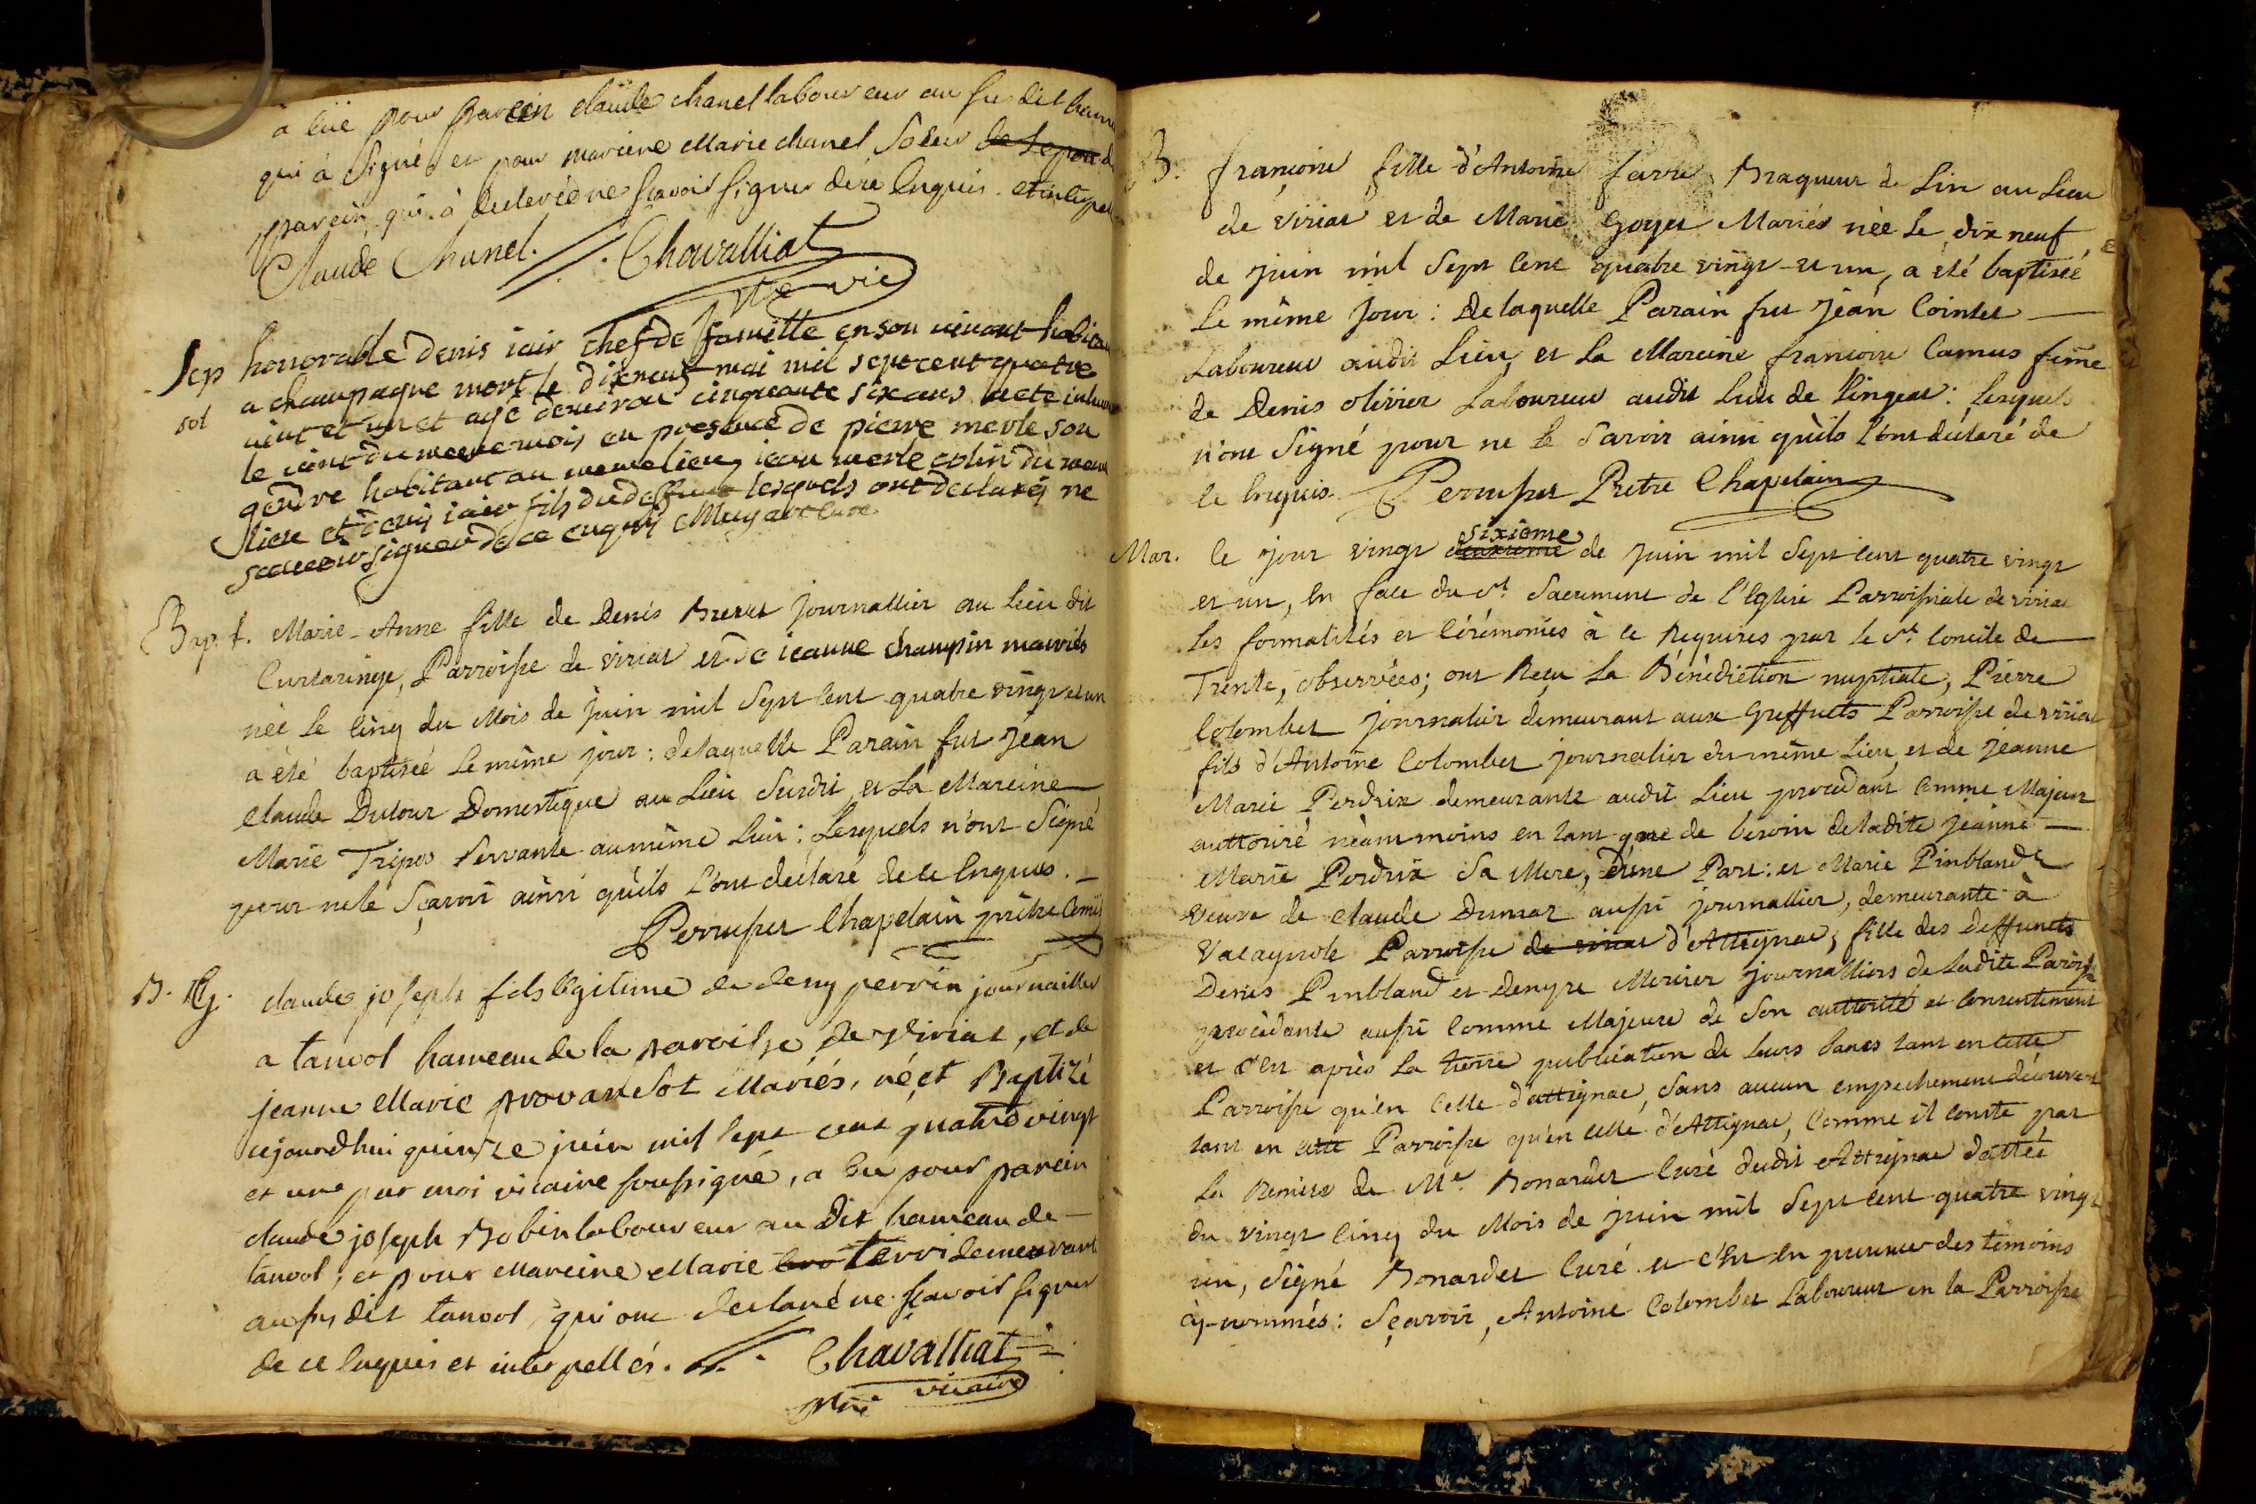 a eüe pour parein claude chanel laboureur au susdit
qui à signé, et pour mareine Marie chanel soeur
parein, qui à declaré ne sçavoir signer de ce enquis. et
Claude Chanel. Chavalliat
vic
Sep honorable denis iair chef de famille en son vivant
sol a champagne mort le dixneuf mai mil sept cent quatre
vint et un et agé denviron cinquante six ans a ete
le vint du meme mois en presence de pierre merle son
gendre habitant au meme lieu, iean merle colin du meme
lieu et denis iair fils du deffunt lesquels ont declarés ne
scavoir signer de ce enquis
Bapt. Marie-Anne fille de Denis Brevet Journallier au lieu dit
Curtaringe, Parroisse de viriat et de ieanne champin mairiés
née le cinq du Mois de juin mil sept cent quatre vingt et un
a été baptisée le même jour: de laquelle Parain fut Jean
Claude Dutour Domestique au Lieu susdit, et La Mareine
Marie Tripos servante au même lieu; Lesquels n'ont signé
pour ne le sçavoir ainsi qu'ils l'ont déclaré de ce enquis.
Perruset Chapelain prêtre
B. claude joseph fils legitime de deny perrin journailler
a tanvol hameau de la paroisse de Viriat, et de
jeanne Marie provandsot Mariés, né et Baptizé
aujourdhui quinze juin mil sept cent quatre vingt
et un par moi vicaire soussigné, a eu pour parein
claude joseph Robin laboureur au dit hameau de
tanvol, et pour Mareine Marie terri demeurante
au susdit tanvol, qui ont declaré ne sçavoir signer
de ce enquis et interpellés. Chavalliat
vicaire
B. françoise fille d'Antoine favre Braqueur de Lin au lieu
de viriat et de Marie Goyet Mariés née le dix neuf
de juin mil sept cent quatre vingt et un, a été baptisée
le même jour: De laquelle Parain fut Jean Cointet
Laboureur audit Lieu, et La Mareine françoise Camus feme
de Denis olivier Laboureur audit Lieu de Lingeat: lesquels
n'ont signé pour ne le savoir ainsi qu'ils l'ont déclaré de
ce enquis. Perruset Prêtre Chapelain
sixieme
Mar. le jour vingt deuxieme de juin mil sept cent quatre vingt
et un, en face du st. sacrement de l'Eglise Parroissiale de viriat
les formalités et Cérémonies à ce Requises par le st. Concile de
Trente, observées; ont Reçu la Bénédiction nuptiale, Pierre
Colombet journalier demeurant aux Greffuets Parroisse de viriat
fils d'Antoine Colombet journalier du même Lieu et de jeanne
Marie Perdrix demeurante audit Lieu procedant Comme Majeur
authorisé néammoins en tant que de besoin de ladite jeanne
Marie Perdrix sa Mere, d'une Part: et Marie Pinbland
veuve de Claude Dumas aussi journallier, demeurante à
Vacagnole Parroisse de viriat d'Attignac, fille des deffuncts
Denis Pinbland et denyse Mercier journalliers de Ladite Paroisse
procédante aussi Comme Majeure de son authorité et Consentement
et c'est après la tierce publication de leurs bancs tant en cette
Parroisse qu'en Celle d'attignac, sans aucun empechement découvert
tant en cette Parroisse qu'en celle d'Attignac, Comme il Conste par
la Remise de Mr. Bonardet Curé dudit Attignac dattée
du vingt cinq du Mois de juin mil sept cent quatre vingt
un, signé Bonardet Curé et c'est en presence des temoins
cy-nommés: sçavoir, Antoine Colombet Laboureur en la Parroisse